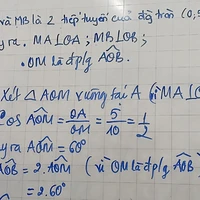 và MB là 2 tiếp tuyến của đg tròn (O;5
y ra. MA⊥OA; MB⊥OB;
. OM là đp/g AÔB.
Xét △ AOM vuông tại A (vì MA⊥O
Cos AÔM = OA/OM = 5/10 = 1/2
y ra AÔM = 60°
AÔB = 2.AÔM (vì OM là đp/g AÔB)
= 2.60°